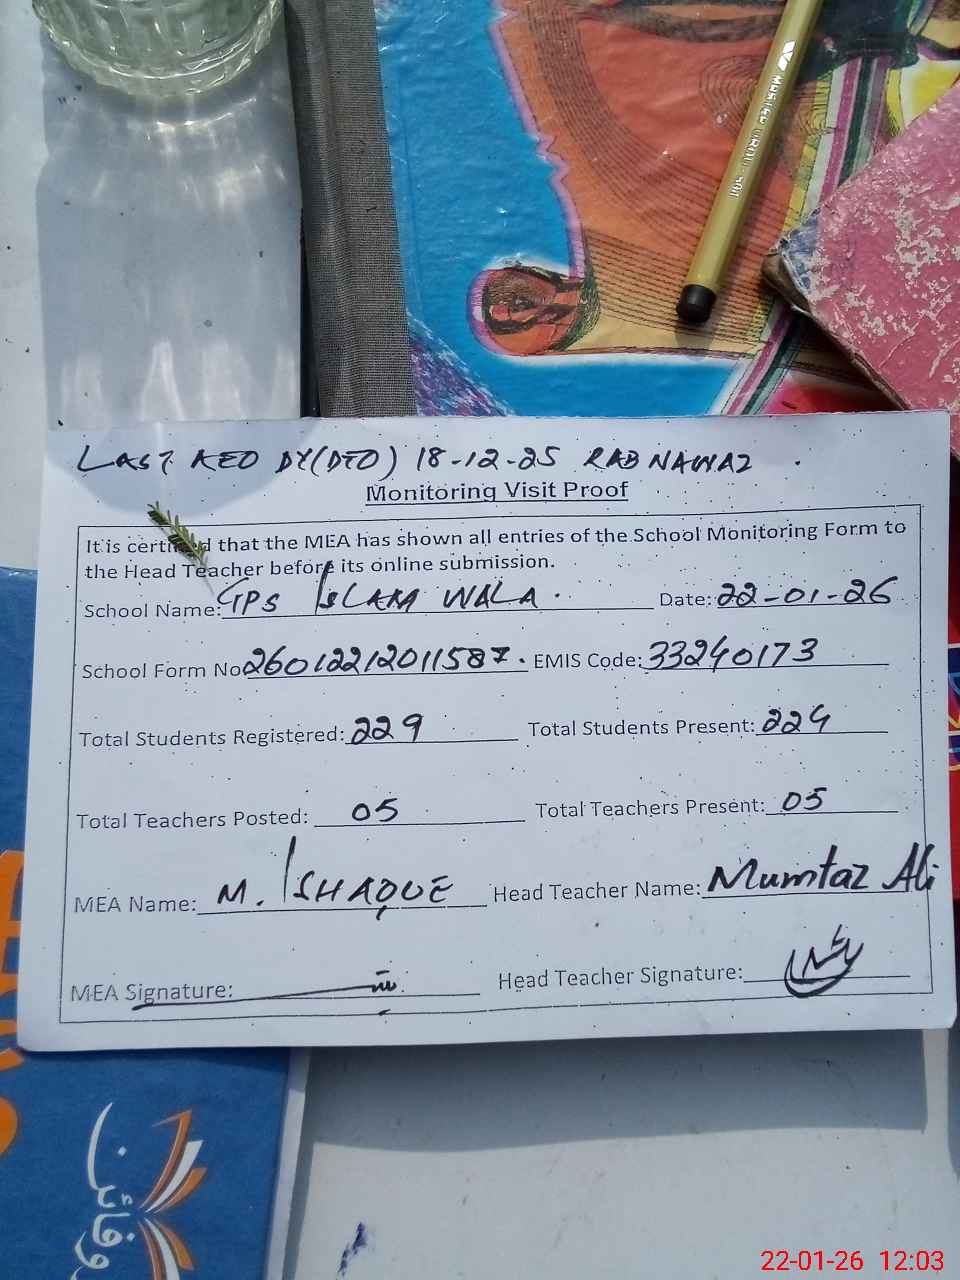 LAST AEO DY(DEO) 18-12-25 RAB NAWAZ
Monitoring Visit Proof
It is certified that the MEA has shown all entries of the School Monitoring Form to
the Head Teacher before its online submission.
School Name: GPS ISLAM WALA. Date: 22-01-26
School Form No 26012212011587. EMIS Code: 33240173
Total Students Registered: 229 Total Students Present: 224
Total Teachers Posted: 05 Total Teachers Present: 05
MEA Name: M. ISHAQUE Head Teacher Name: Mumtaz Ali
MEA Signature: Head Teacher Signature:
22-01-26 12:03